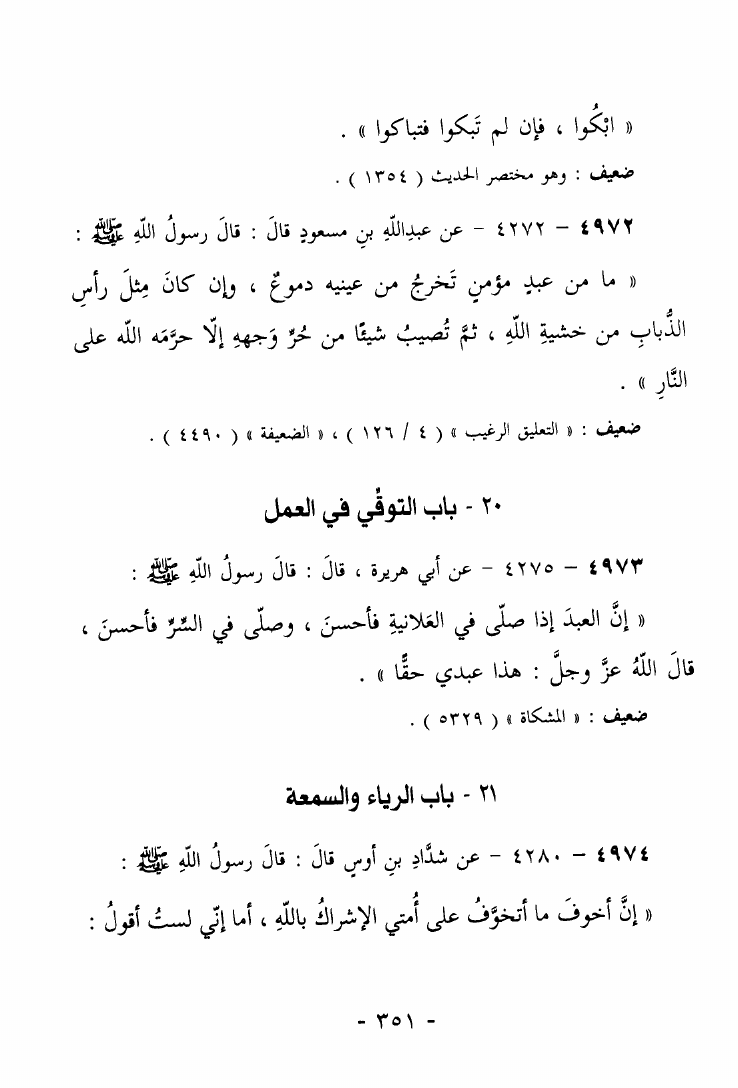 « ابْكُوا ، فإن لم تَبكوا فتباكوا » .
ضعيف : وهو مختصر الحديث ( ١٣٥٤ ) .
٤٩٧٢ – ٤٢٧٢ – عن عبدِاللّهِ بنِ مسعودٍ قالَ : قالَ رسولُ اللّهِ ﷺ :
« ما من عبدٍ مؤمنٍ تَخرجُ من عينيه دموعٌ ، وإن كانَ مِثلَ رأسِ
الذُّبابِ من خشيةِ اللّهِ ، ثمَّ تُصيبُ شيئًا من حُرِّ وَجههِ إلّا حرَّمَه اللّه على
النَّارِ » .
ضعيف : « التعليق الرغيب » ( ٤ / ١٢٦ ) ، « الضعيفة » ( ٤٤٩٠ ) .
٢٠ - باب التوقِّي في العمل
٤٩٧٣ – ٤٢٧٥ – عن أبي هريرة ، قالَ : قالَ رسولُ اللّهِ ﷺ :
« إنَّ العبدَ إذا صلّى في العَلانيةِ فأحسنَ ، وصلّى في السِّرِّ فأحسنَ ،
قالَ اللّهُ عزَّ وجلَّ : هذا عبدي حقًّا » .
ضعيف : « المشكاة » ( ٥٣٢٩ ) .
٢١ - باب الرياء والسمعة
٤٩٧٤ – ٤٢٨٠ – عن شدَّادِ بنِ أوسٍ قالَ : قالَ رسولُ اللّهِ ﷺ :
« إنَّ أخوفَ ما أتخوَّفُ على أُمتي الإشراكُ باللّهِ ، أما إنّي لستُ أقولُ :
- ٣٥١ -